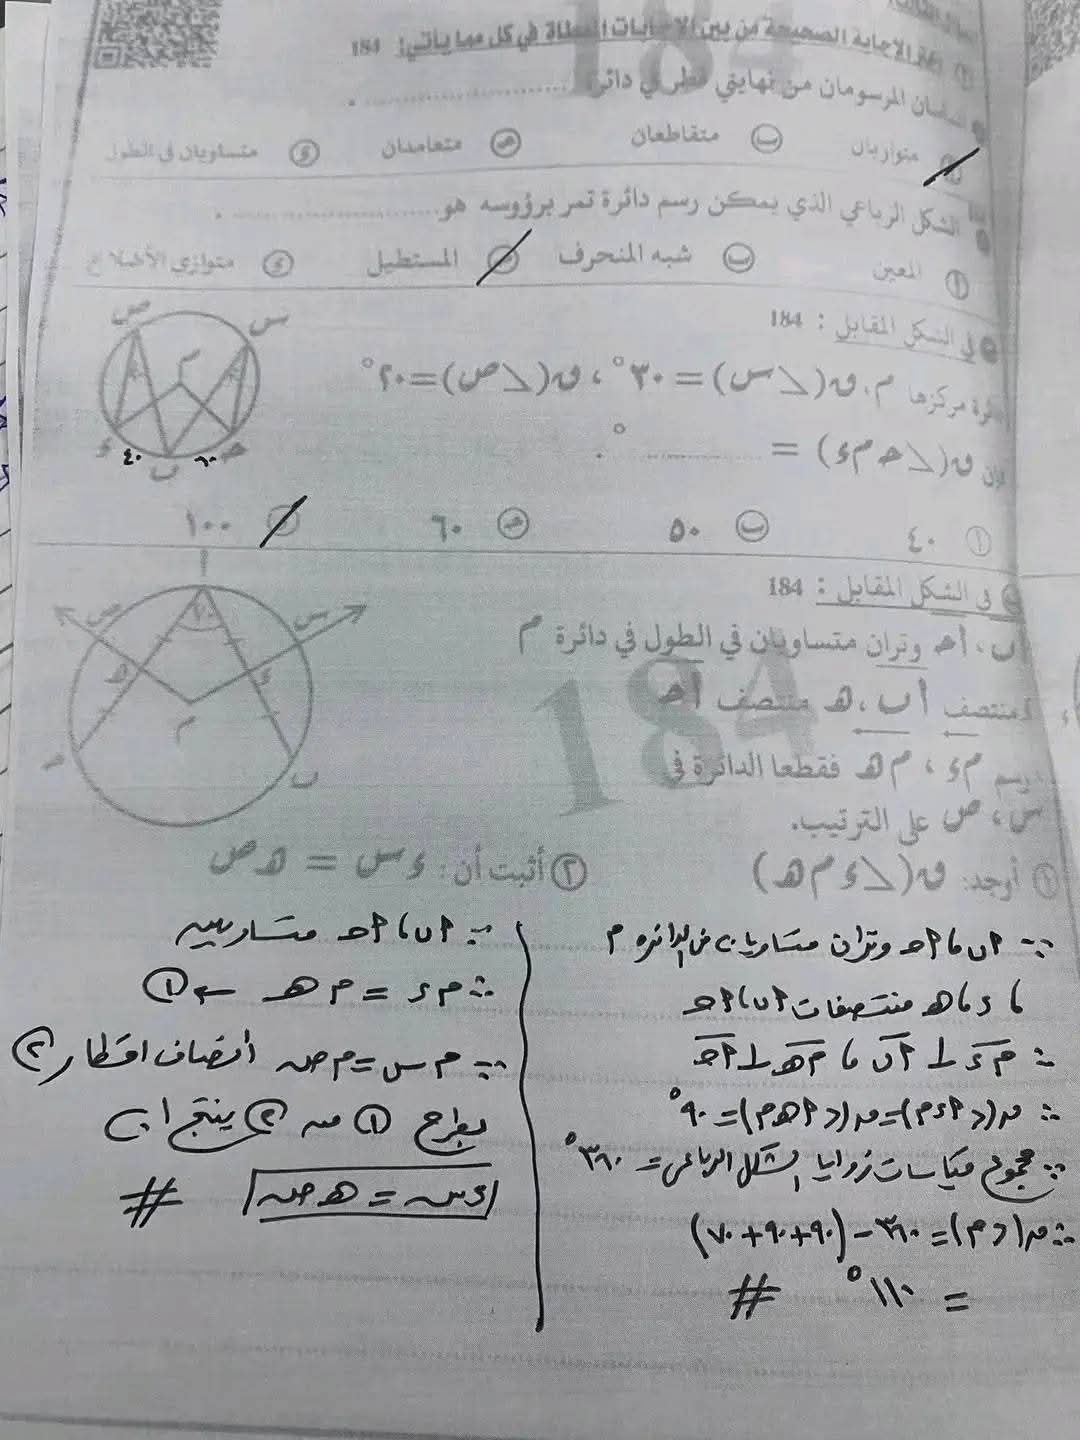 الإجابة الصحيحة من بين الإجابات المعطاة في كل مما يأتي: 184
المرسومان من نهايتي قطر في دائرة ..............
متوازيان ب متقاطعان جـ متعامدان د متساويان في الطول
الشكل الرباعي الذي يمكن رسم دائرة تمر برؤوسه هو..............
أ المعين ب شبه المنحرف جـ المستطيل د متوازي الأضلاع
في الشكل المقابل : 184
دائرة مركزها م، ق(∠س) = ٣٠°، ق(∠ص) = ٢٠°
فإن ق(∠جـ م ء) = ..............°
س
ص
م
ء
ب
جـ
٤٠
٦٠
أ ٤٠ ب ٥٠ جـ ٦٠ ١٠٠
في الشكل المقابل : 184
ب، أجـ وتران متساويان في الطول في دائرة م
منتصف أب، هـ منتصف أجـ
رسم م ء، م هـ فقطعا الدائرة في
س، ص على الترتيب.
أ
٧٠
س
ص
ء
هـ
م
ب
جـ
184
١ أوجد: ق(∠ء م هـ) ٢ أثبت أن: ء س = هـ ص
∵ أب، أجـ وتران متساويان في الدائرة م
، ء، هـ منتصفات أب، أجـ
∴ م ء ⊥ أب، م هـ ⊥ أجـ
∴ ق(∠أ ء م) = ق(∠أ هـ م) = ٩٠°
∵ مجموع قياسات زوايا الشكل الرباعي = ٣٦٠°
∴ ق(∠م) = ٣٦٠ - (٩٠+٩٠+٧٠)
= ١١٠° #
∵ أب، أجـ متساويين
∴ م ء = م هـ ← ١
∵ م س = م ص أنصاف أقطار ٢
بطرح ١ من ٢ ينتج أن
ء س = هـ ص #